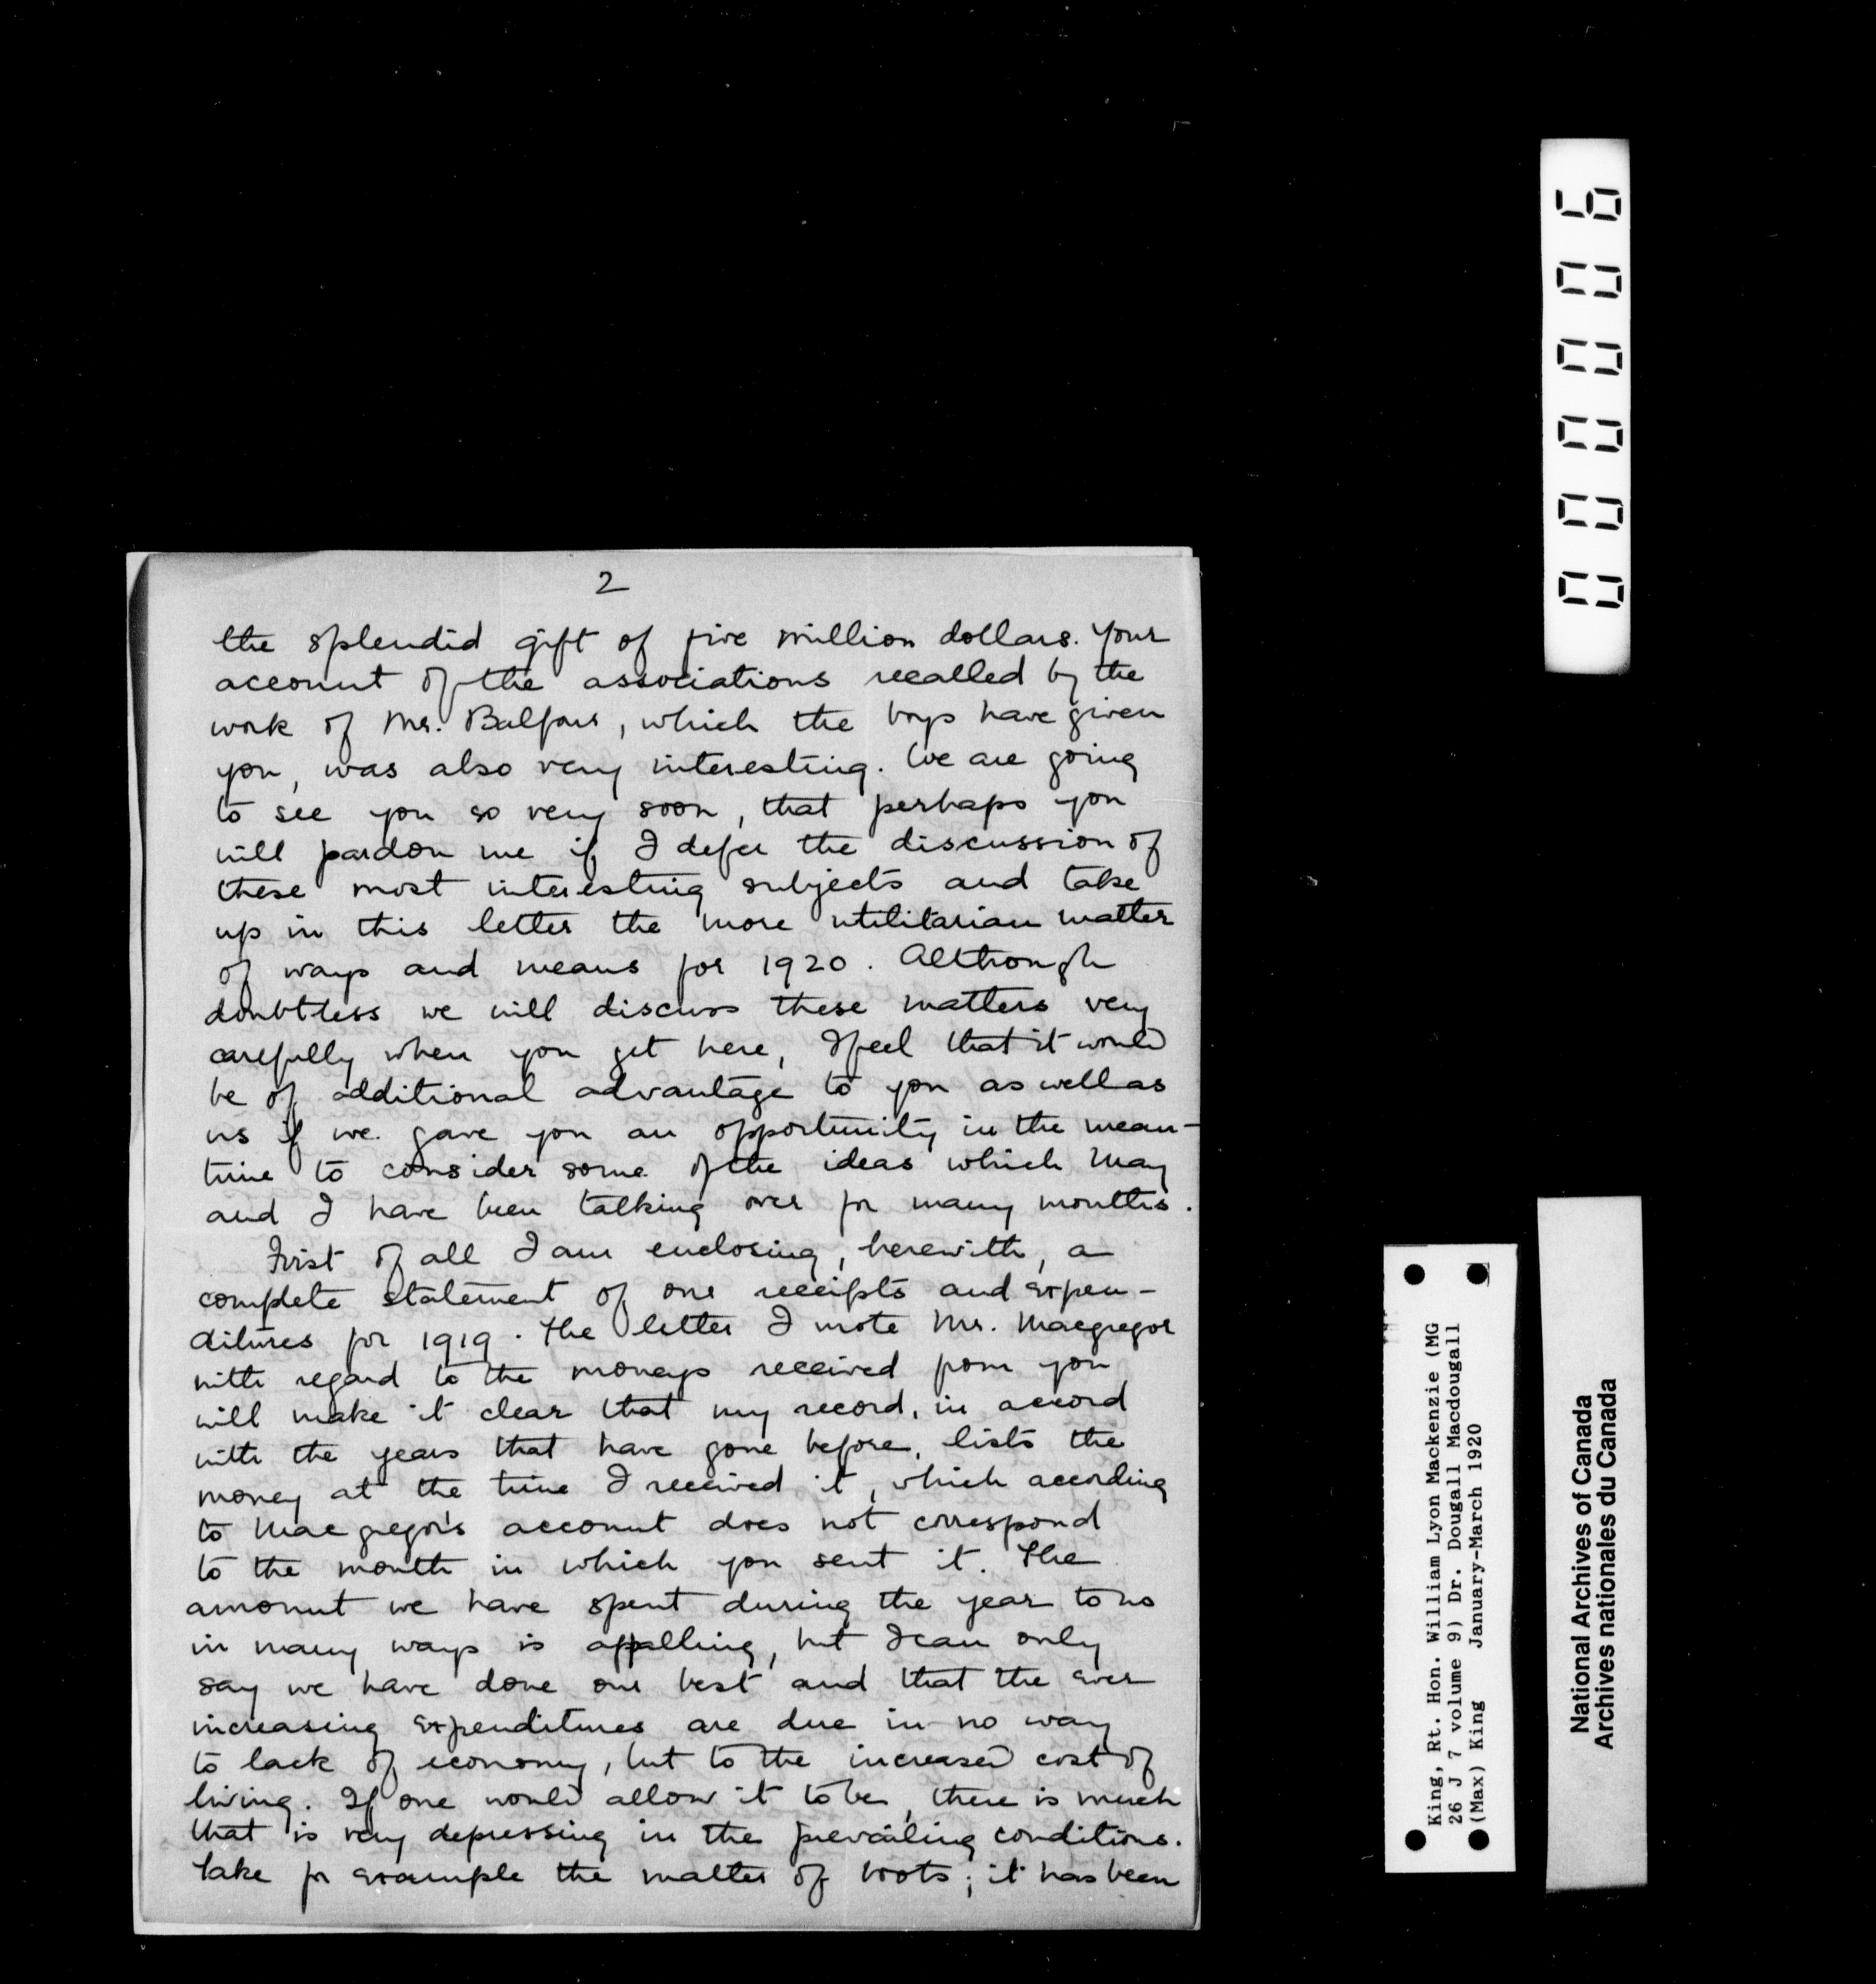 2
the splendid gift of five million dollars. Your
account of the associations recalled by the
work of Mr. Balfour, which the boys have given
you, was also very interesting. We are going
to see you so very soon, that perhaps you
will pardon me if I defer the discussion of
these most interesting subjects and take
up in this letter the more utilitarian matter
of ways and means for 1920. Although
doubtless we will discuss these matters very
carefully when you get here, I feel that it would
be of additional advantage to you as well as
us if we gave you an opportunity in the mean-
time to consider some of the ideas which May
and I have been talking over for many months.
First of all I am enclosing, herewith, a
complete statement of our receipts and expen-
ditures for 1919. The letter I wrote Mr. Macgregor
with regard to the moneys received from you
will make it clear that my record, in accord
with the years that have gone before, lists the
money at the time I received it, which according
to Macgregor's account does not correspond
to the month in which you sent it. The
amount we have spent during the year to us
in many ways is appalling, but I can only
say we have done our best and that the ever
increasing expenditures are due in no way
to lack of economy, but to the increased cost of
living. If one would allow it to be, there is much
that is very depressing in the prevailing conditions.
Take for example the matter of boots; it has been
000006
King, Rt. Hon. William Lyon Mackenzie (MG
26 J 7 volume 9) Dr. Dougall Macdougall
(Max) King January-March 1920
National Archives of Canada
Archives nationales du Canada